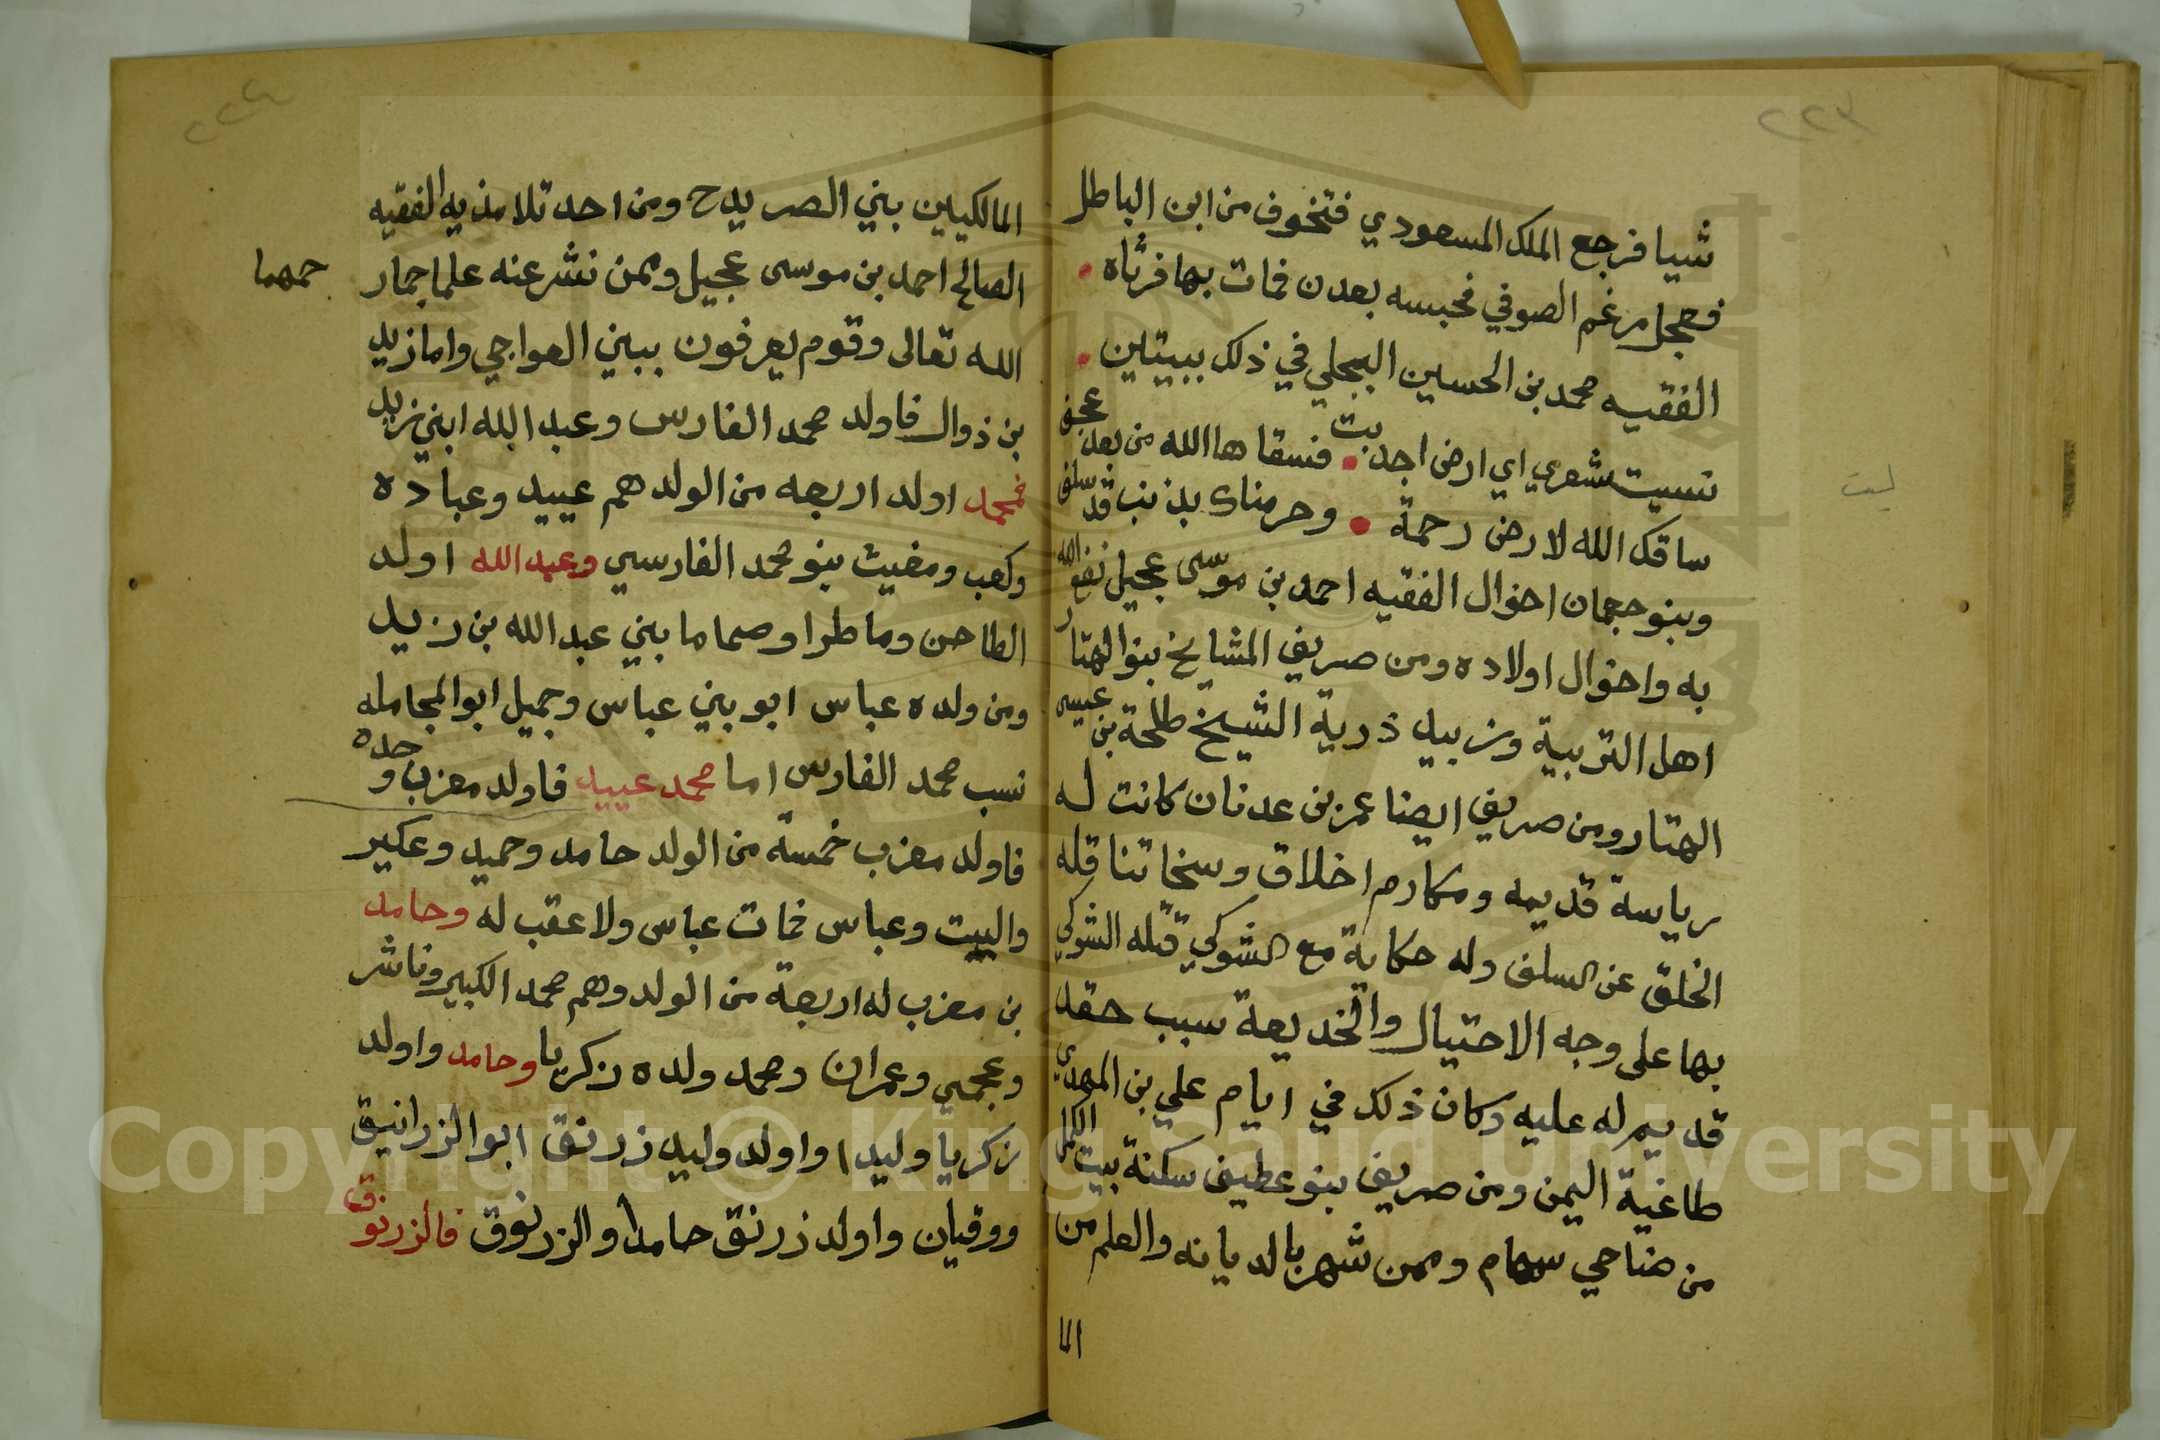 ٢٢٣
شيا فرجع الملك المسعودي فتخوف من ابن الباطل
فعجل مرغم الصوفي فحبسه بعدن فمات بها فرثاه
الفقيه محمد بن الحسين البجلي في ذلك ببيتين
نسيت شعري اي ارض اجدبت فسقاها الله من بعد عجف
ليت
ساقك الله لارض رحمة وحرمناك بذنب قد سلف
وبنو حجمان اخوال الفقيه احمد بن موسى عجيل نفع الله
به واخوال اولاده ومن صريف المشايخ بنو الهتار
اهل التربية وزبيد ذرية الشيخ طلحة بن عيسى
الهتار ومن صريف ايضا عمر بن عدنان كانت له
رياسة قديمه ومكارم اخلاق وسخا تناقله
الخلق عن السلف وله حكاية مع الشوكي قتله الشوكي
بها على وجه الاحتيال والخديعة سبب حقد
قديم له عليه وكان ذلك في ايام علي بن المهدي
طاغية اليمن ومن صريف بنو عطيف سكنة بيت
من ضناحي سهام وممن شهر بالديانه والعلم من
الما
٢٢٤
المالكيين بني الصريدح ومن احد تلامذيه الفقيه
الصالح احمد بن موسى عجيل وممن نشر عنه علما جمار
حمهما
الله تعالى وقوم يعرفون ببني العواجي واما زيد
بن ذوال فاولد محمد الفارس وعبد الله ابني زيد
فمحمد اولد اربعه من الولد هم عبيد وعباده
وكعب ومغيث بنو محمد الفارسي وعبد الله اولد
الطاحن وماطرا وصماما بني عبد الله بن زيد
ومن ولده عباس ابو بني عباس وجميل ابو المجامله
نسب محمد الفارس اما محمد عبيد فاولد معزب وحده
فاولد معزب خمسة من الولد حامد وحميد وعكير
والبيت وعباس فمات عباس ولا عقب له وحامد
بن معزب له اربعة من الولد وهم محمد الكبير وناشر
وعجمي وعمران ومحمد ولده زكريا وحامد واولد
زكريا وليدا واولد وليد زرنق ابو الزرانيق
ووقيان واولد زرنق حامدا والزرنوق فالزرنوق